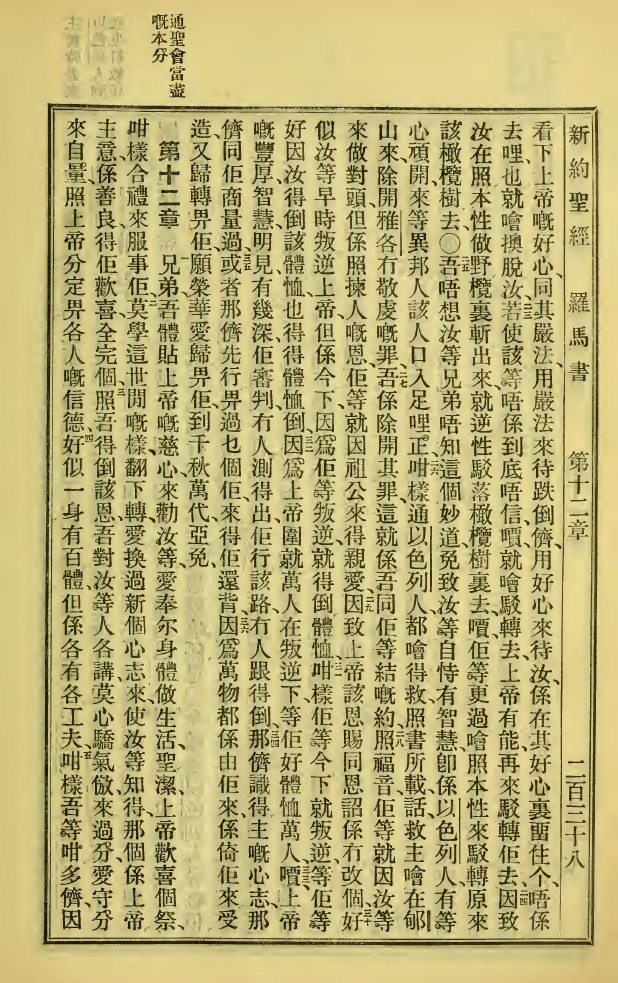 通聖會當盡
嘅本分
新約聖經 羅馬書 第十二章 二百三十八
看下上帝嘅好心、同其嚴法、用嚴法來待跌倒儕、用好心來待汝、係在其好心裏留住个、唔係
去哩、也就噲㨃脫汝、二三若使該等唔係到底唔信、嘳就噲駁轉去、上帝有能再來駁轉佢去、二四因致
汝在照本性做野欖裏斬出來、就逆性駁落橄欖樹裏去、嘳佢等更過噲照本性來駁轉原來
該橄欖樹去〇二五吾唔想汝等兄弟唔知這個妙道、免致汝等自恃有智慧、卽係以色列人有等
心頑開來、等異邦人該人口入足哩、正二六咁樣通以色列人、都噲得救、照書所載話、救主噲在郇
山來、除開雅各冇敬虔嘅罪、二七吾係除開其罪、這就係吾同佢等結嘅約、二八照福音佢等就因汝等
來做對頭、但係照揀人嘅恩、佢等就因祖公來得親愛、二九因致上帝該恩賜同恩詔、係冇改個、三十好
似汝等早時叛逆上帝、但係今下因爲佢等叛逆、就得倒體恤、三一咁樣佢等今下就叛逆、等佢等
好因汝得倒該體恤、也得得體恤倒、三二因爲上帝圍就萬人在叛逆下、等佢好體恤萬人、三三嘳上帝
嘅豐厚智慧明見有幾深、佢審判冇人測得出、佢行該路冇人跟得倒、三四那儕識得主嘅心志、那
儕同佢商量過、三五或者那儕先行畀過乜個佢、來得佢還背、三六因爲萬物都係由佢來、係倚佢來受
造、又歸轉畀佢、願榮華愛歸畀佢、到千秋萬代、亞㝃
第十二章 一兄弟、吾體貼上帝嘅慈心、來勸汝等、愛奉尔身體做生活聖潔、上帝歡喜個祭、
咁樣合禮來服事佢、二莫學這世間嘅樣、翻下轉愛換過新個心志來、使汝等知得、那個係上帝
主意、係善良得佢歡喜全完個、三照吾得倒該恩、吾對汝等人各講、莫心驕氣傲來過分、愛守分
來自量、照上帝分定畀各人嘅信德、四好似一身有百體、但係各有各工夫、五咁樣吾等咁多儕、因